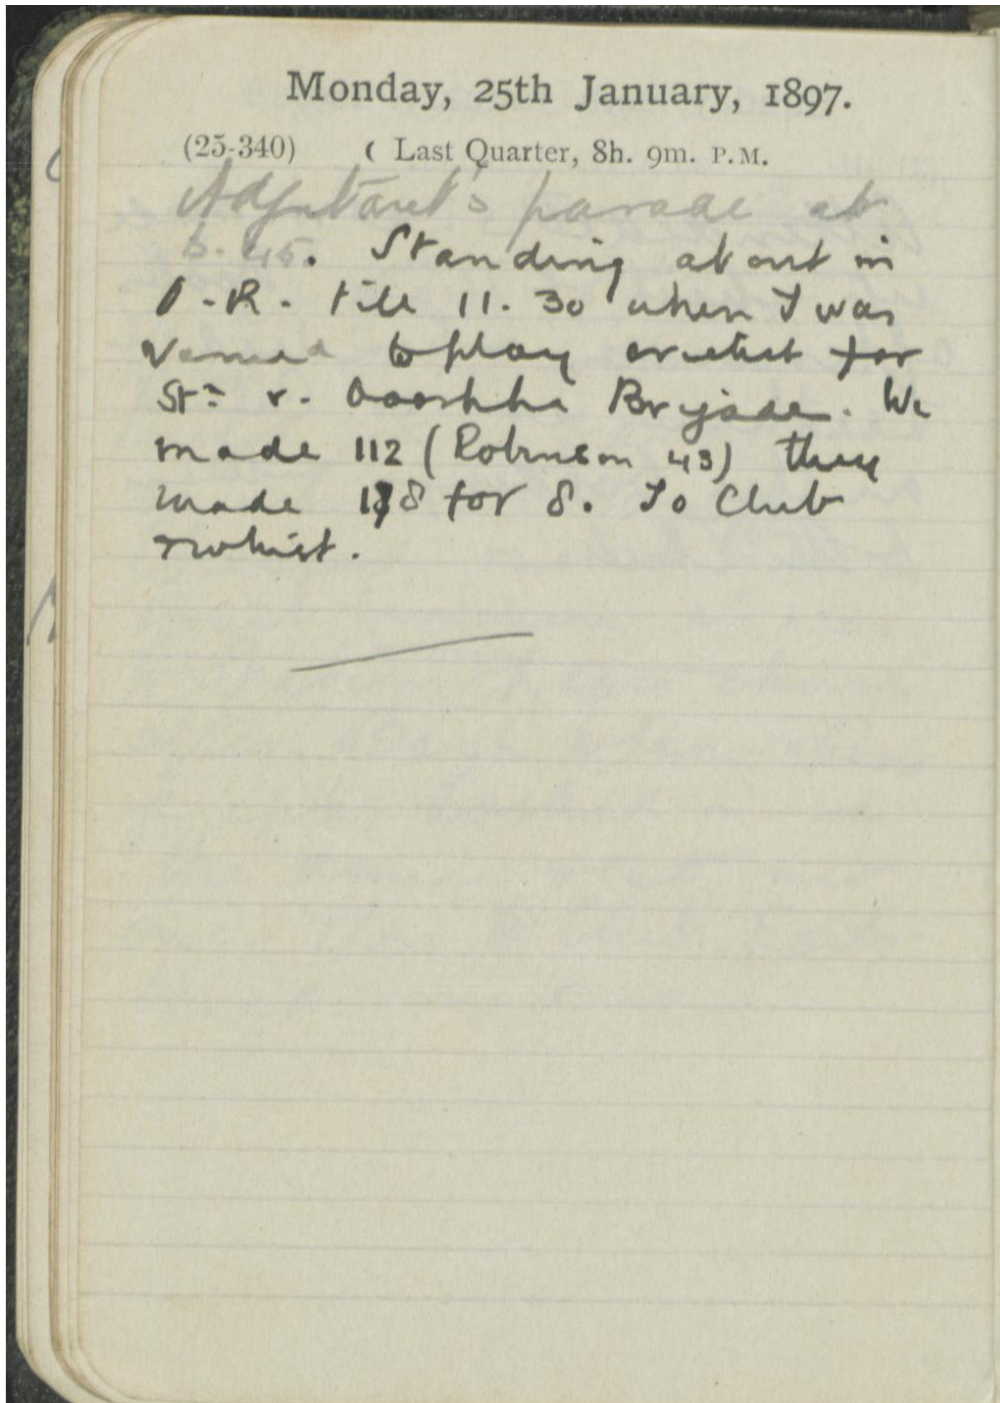 Monday, 25th January, 1897.
(25-340) ( Last Quarter, 8h. 9m. P.M.
Adjutant's parade at
6.45. Standing about in
O.R. till 11.30 when I was
to play cricket for
Stn v. Goorkha Brigade. We
made 112 (Robinson 43) they
made 178 for 8. To Club
& whist.